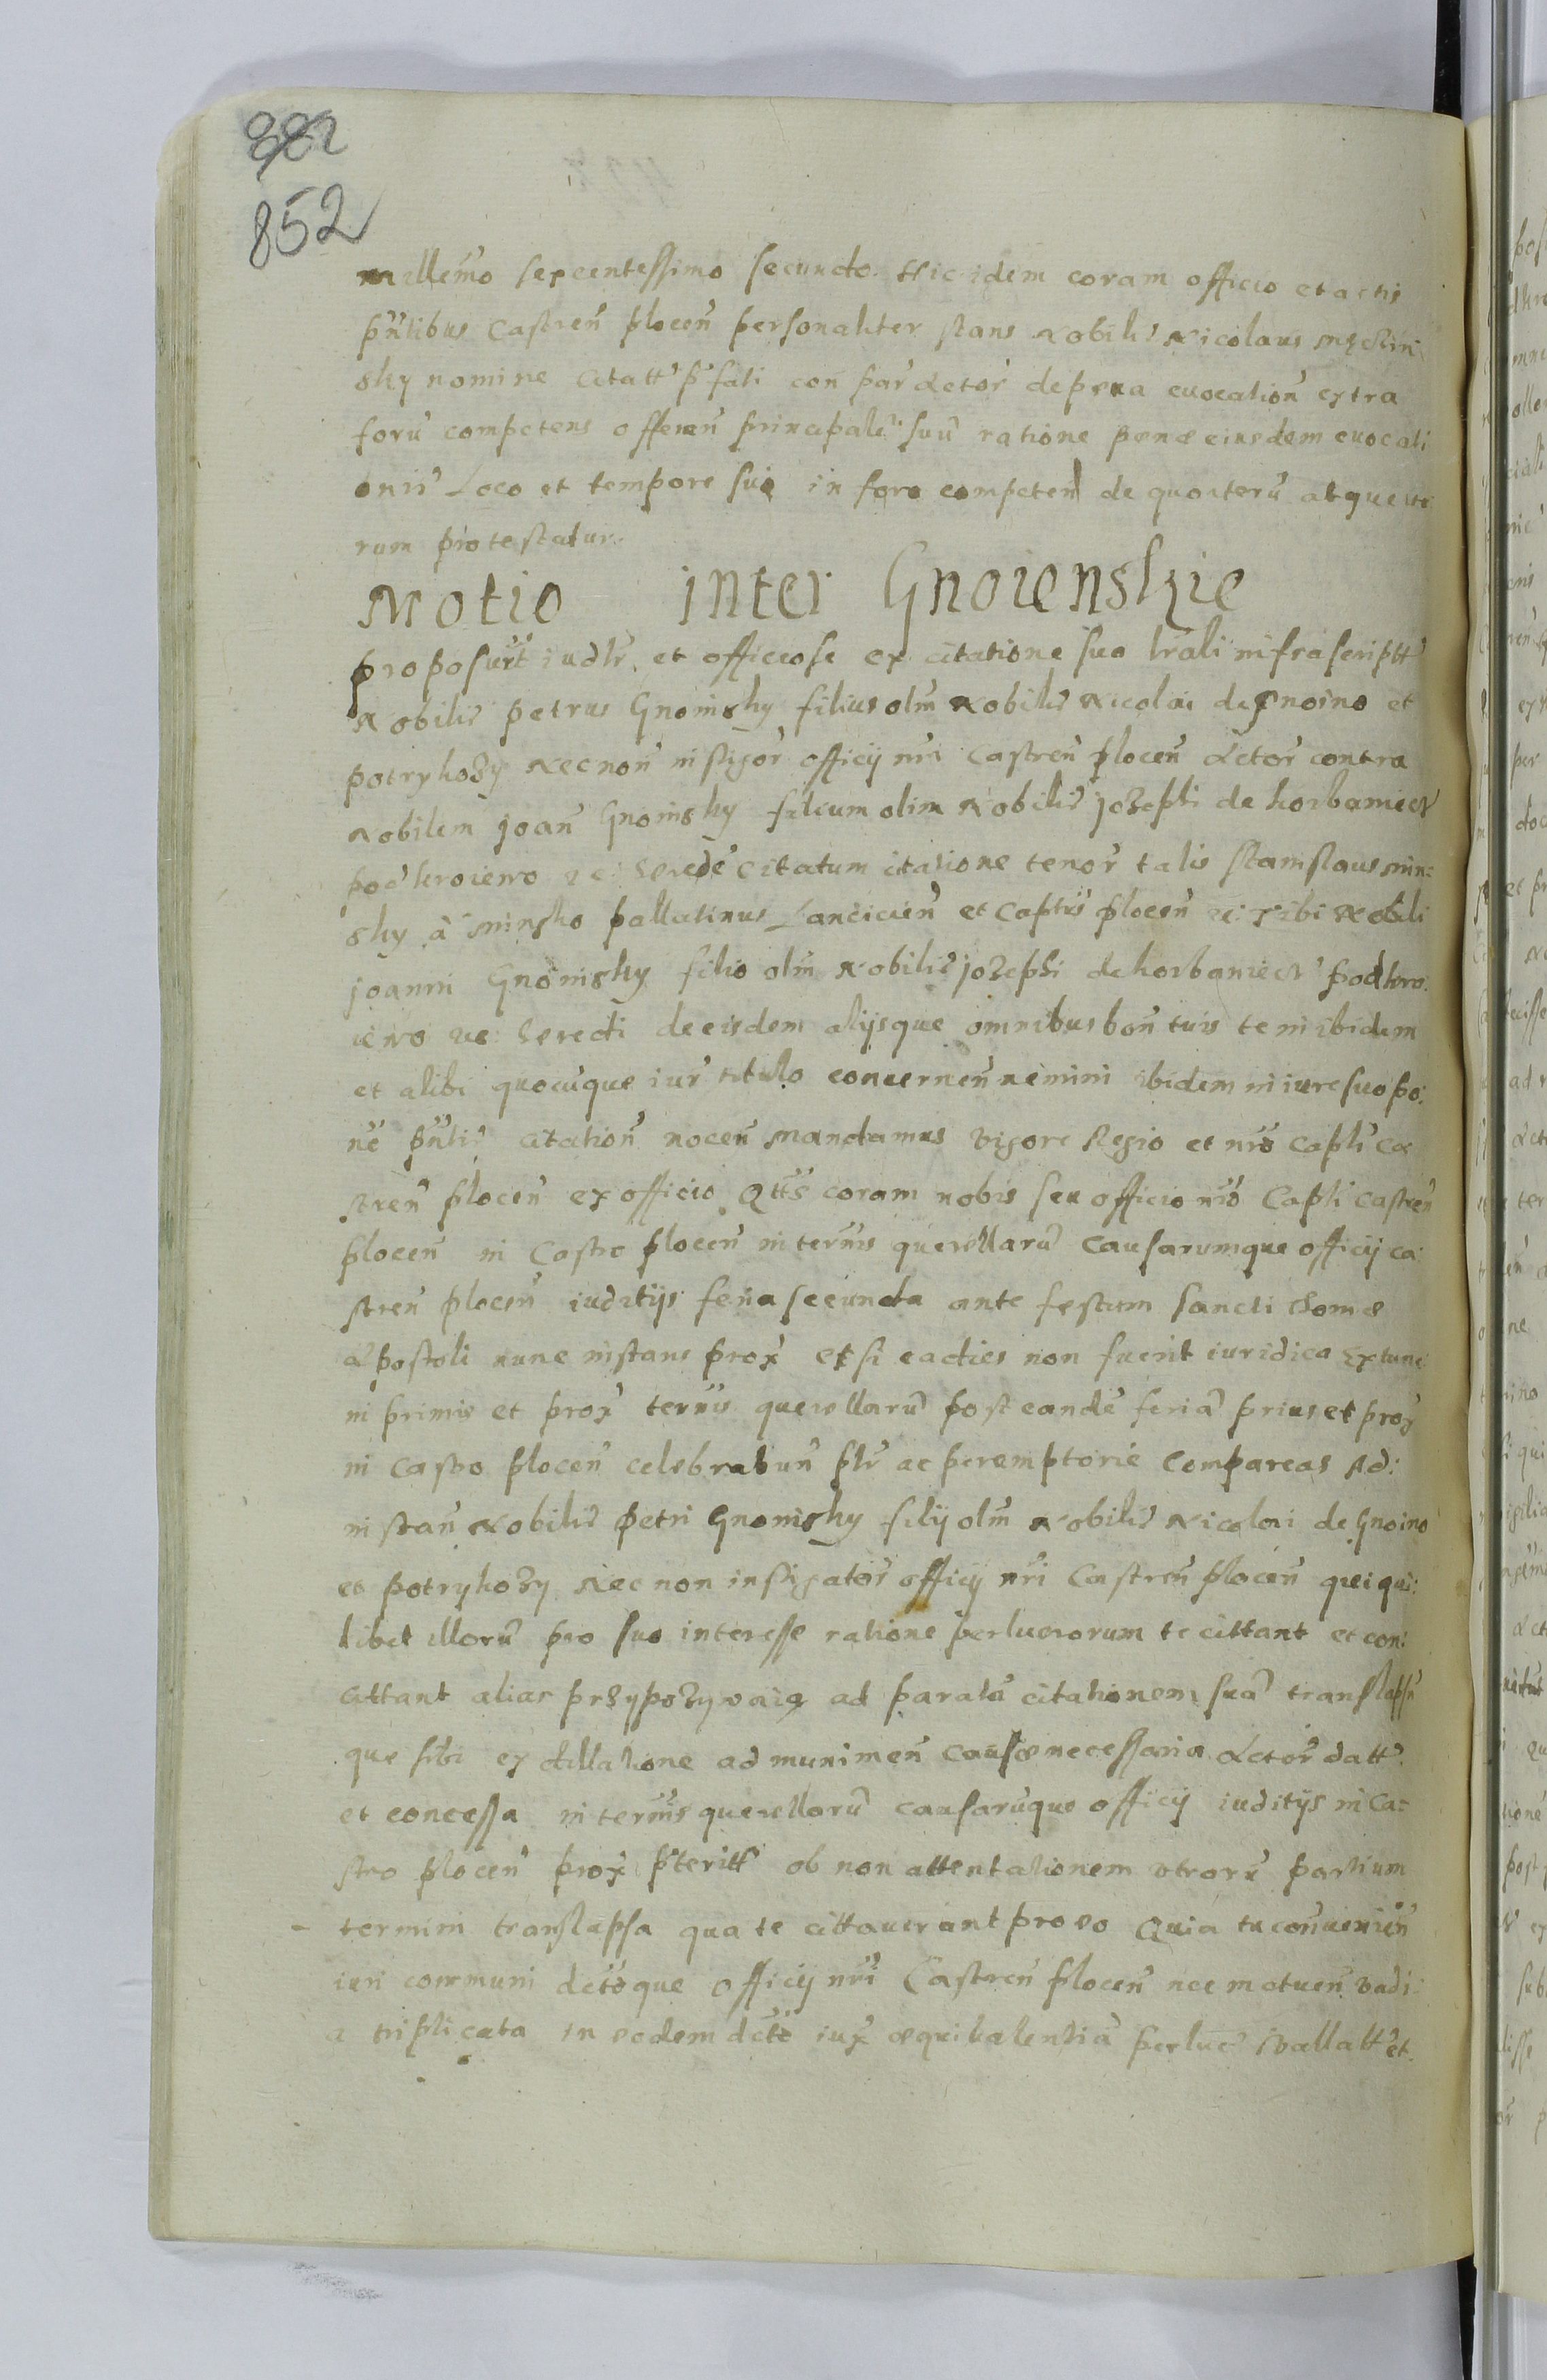 882
852
millemo sexcentessimo secundo. Hic idem coram officio et actis
pñtibus Castreñ plocen personaliter stans Nobilis Nicolaus
sky nomine Citatt p̃fati con par Actor de pena euocation extra
foru competens offeren principale suu ratione penæ eiusdem euocati
onis Loco et tempore suo in foro competen de quo iteru atque ite
rum protestatur.
Motio inter Gnoienskie
proposuit iudlr et officiose ex citatione sua lrali infrascriptt
Nobilis petrus Gnoinsky filius olm Nobilis Nicolai de gnoino et
potrykozy Necnon instigor officij nri Castren plocen Actor contra
Nobilem joan Gnoinsky filium olim Nobilis jozephi de
uc herede citatum citatione tenor talis stanislaus min:
sky à minsko pallatinus Lancicien et Captus plocen etc tibi Nobili
joanni Gnoinsky filio olm Nobilis jozephi de
uc heredi de eisdem alijsque omnibus bon tuis te in ibidem
et alibi quocuque iur titulo concernen nemini ibidem in iure suo po:
ne pñtis citation nocen Mandamus vigore Regio et nro capli Ca
stren plocen ex officio Qtts coram nobis seu officio nro Capli Castren
plocen in Castro plocen in termis querellaru Causarumque officij ca
stren plocen iuditijs feria secunda ante festum sancti thomæ
Apostoli nunc instans prox et si ea dies non fuerit iuridica Extunc
in primis et prox termis querellaru post eande feria prius et prox
in Castro plocen celebrabun plr ac peremptorie Compareas Ad:
instan Nobilis petri Gnoinsky filij olm Nobilis Nicolai de Gnoino
et potrykozy Nec non instigatoris officij nri Castren plocen qui qui:
libet illoru pro suo interesse ratione perlucrorum te cittant et con:
cittant alias przypozywaią ad parata citationem sua translapsa
que sibi ex dillatione ad munimen causæ necessaria Actor datt
et concessa in termis querellaru causaruque officij iuditijs in Ca=
stro plocen prox p̃teritt ob non attentationem utraru partium
termini translapsa qua te cittauerant pro eo Quia tu conuenien
iuri communi dctoque officij nri Castren plocen nec metuen vadi:
a triplicata in eodem dcto iux æquiualentia perluc Vallatt et